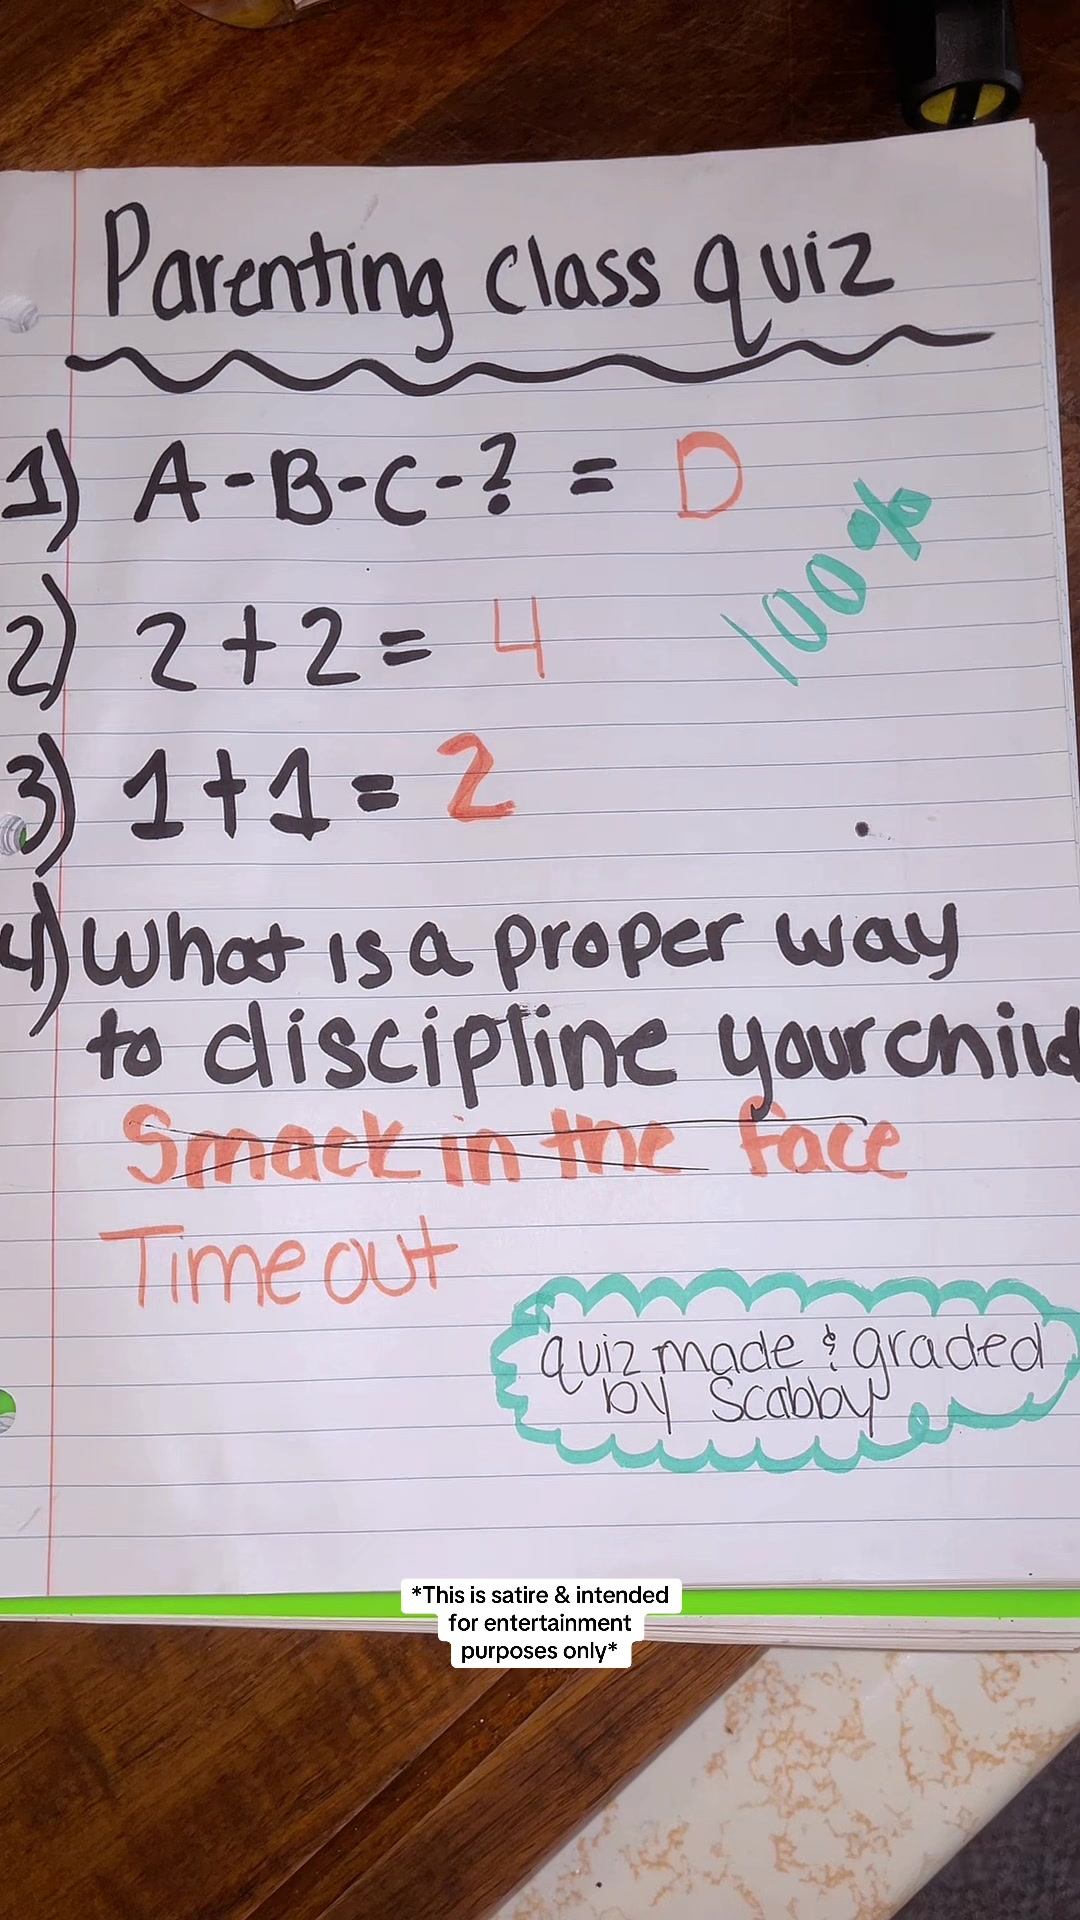 Parenting class quiz
1) A-B-C-? = D
100%
2) 2+2= 4
3) 1+1= 2
4) What is a proper way
to discipline your child
Smack in the face
Time out
quiz made & graded
by Scabby
*This is satire & intended
for entertainment
purposes only*